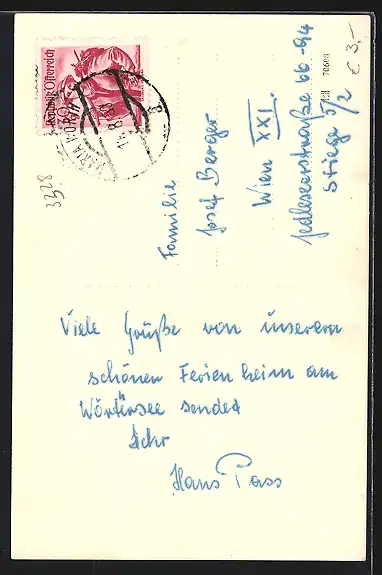 Republik Österreich
MARIA WÖRTH
3928
Familie
Josef Berger
Wien XXI.
Jedleseerstraße 66-94
Stiege 5/2
€ 3,-
70608
Viele Grüße von unserem
schönen Ferienheim am
Wörtersee sendet
Ihr
Hans Pass